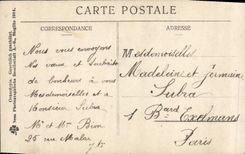 CARTE POSTALE
CORRESPONDANCE
ADRESSE
Nous vous envoyons
Mes vœux et souhaits
de bonheurs à vous
Mesdemoiselles et à
Monsieur Subra
Mr et Mme
25 rue Malar
Mesdemoiselles
Madeleine et Germaine
Subra
1 Bard Exelmans
Paris